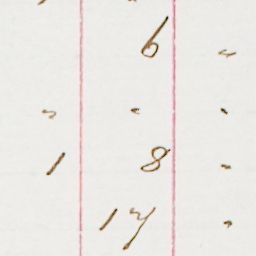 6 "
" " "
1 8 "
17 "